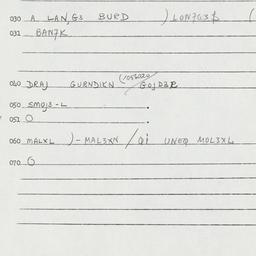 030 A. LAN,G3 BURD ) LON7G3
031 BAN7K
040 DRAJ GURNDIKN GOJD3R
050 SMOJ3-L
051 O
060 MALXL )-MAL3XN / Qi UNEQ MOL3XL
070 O